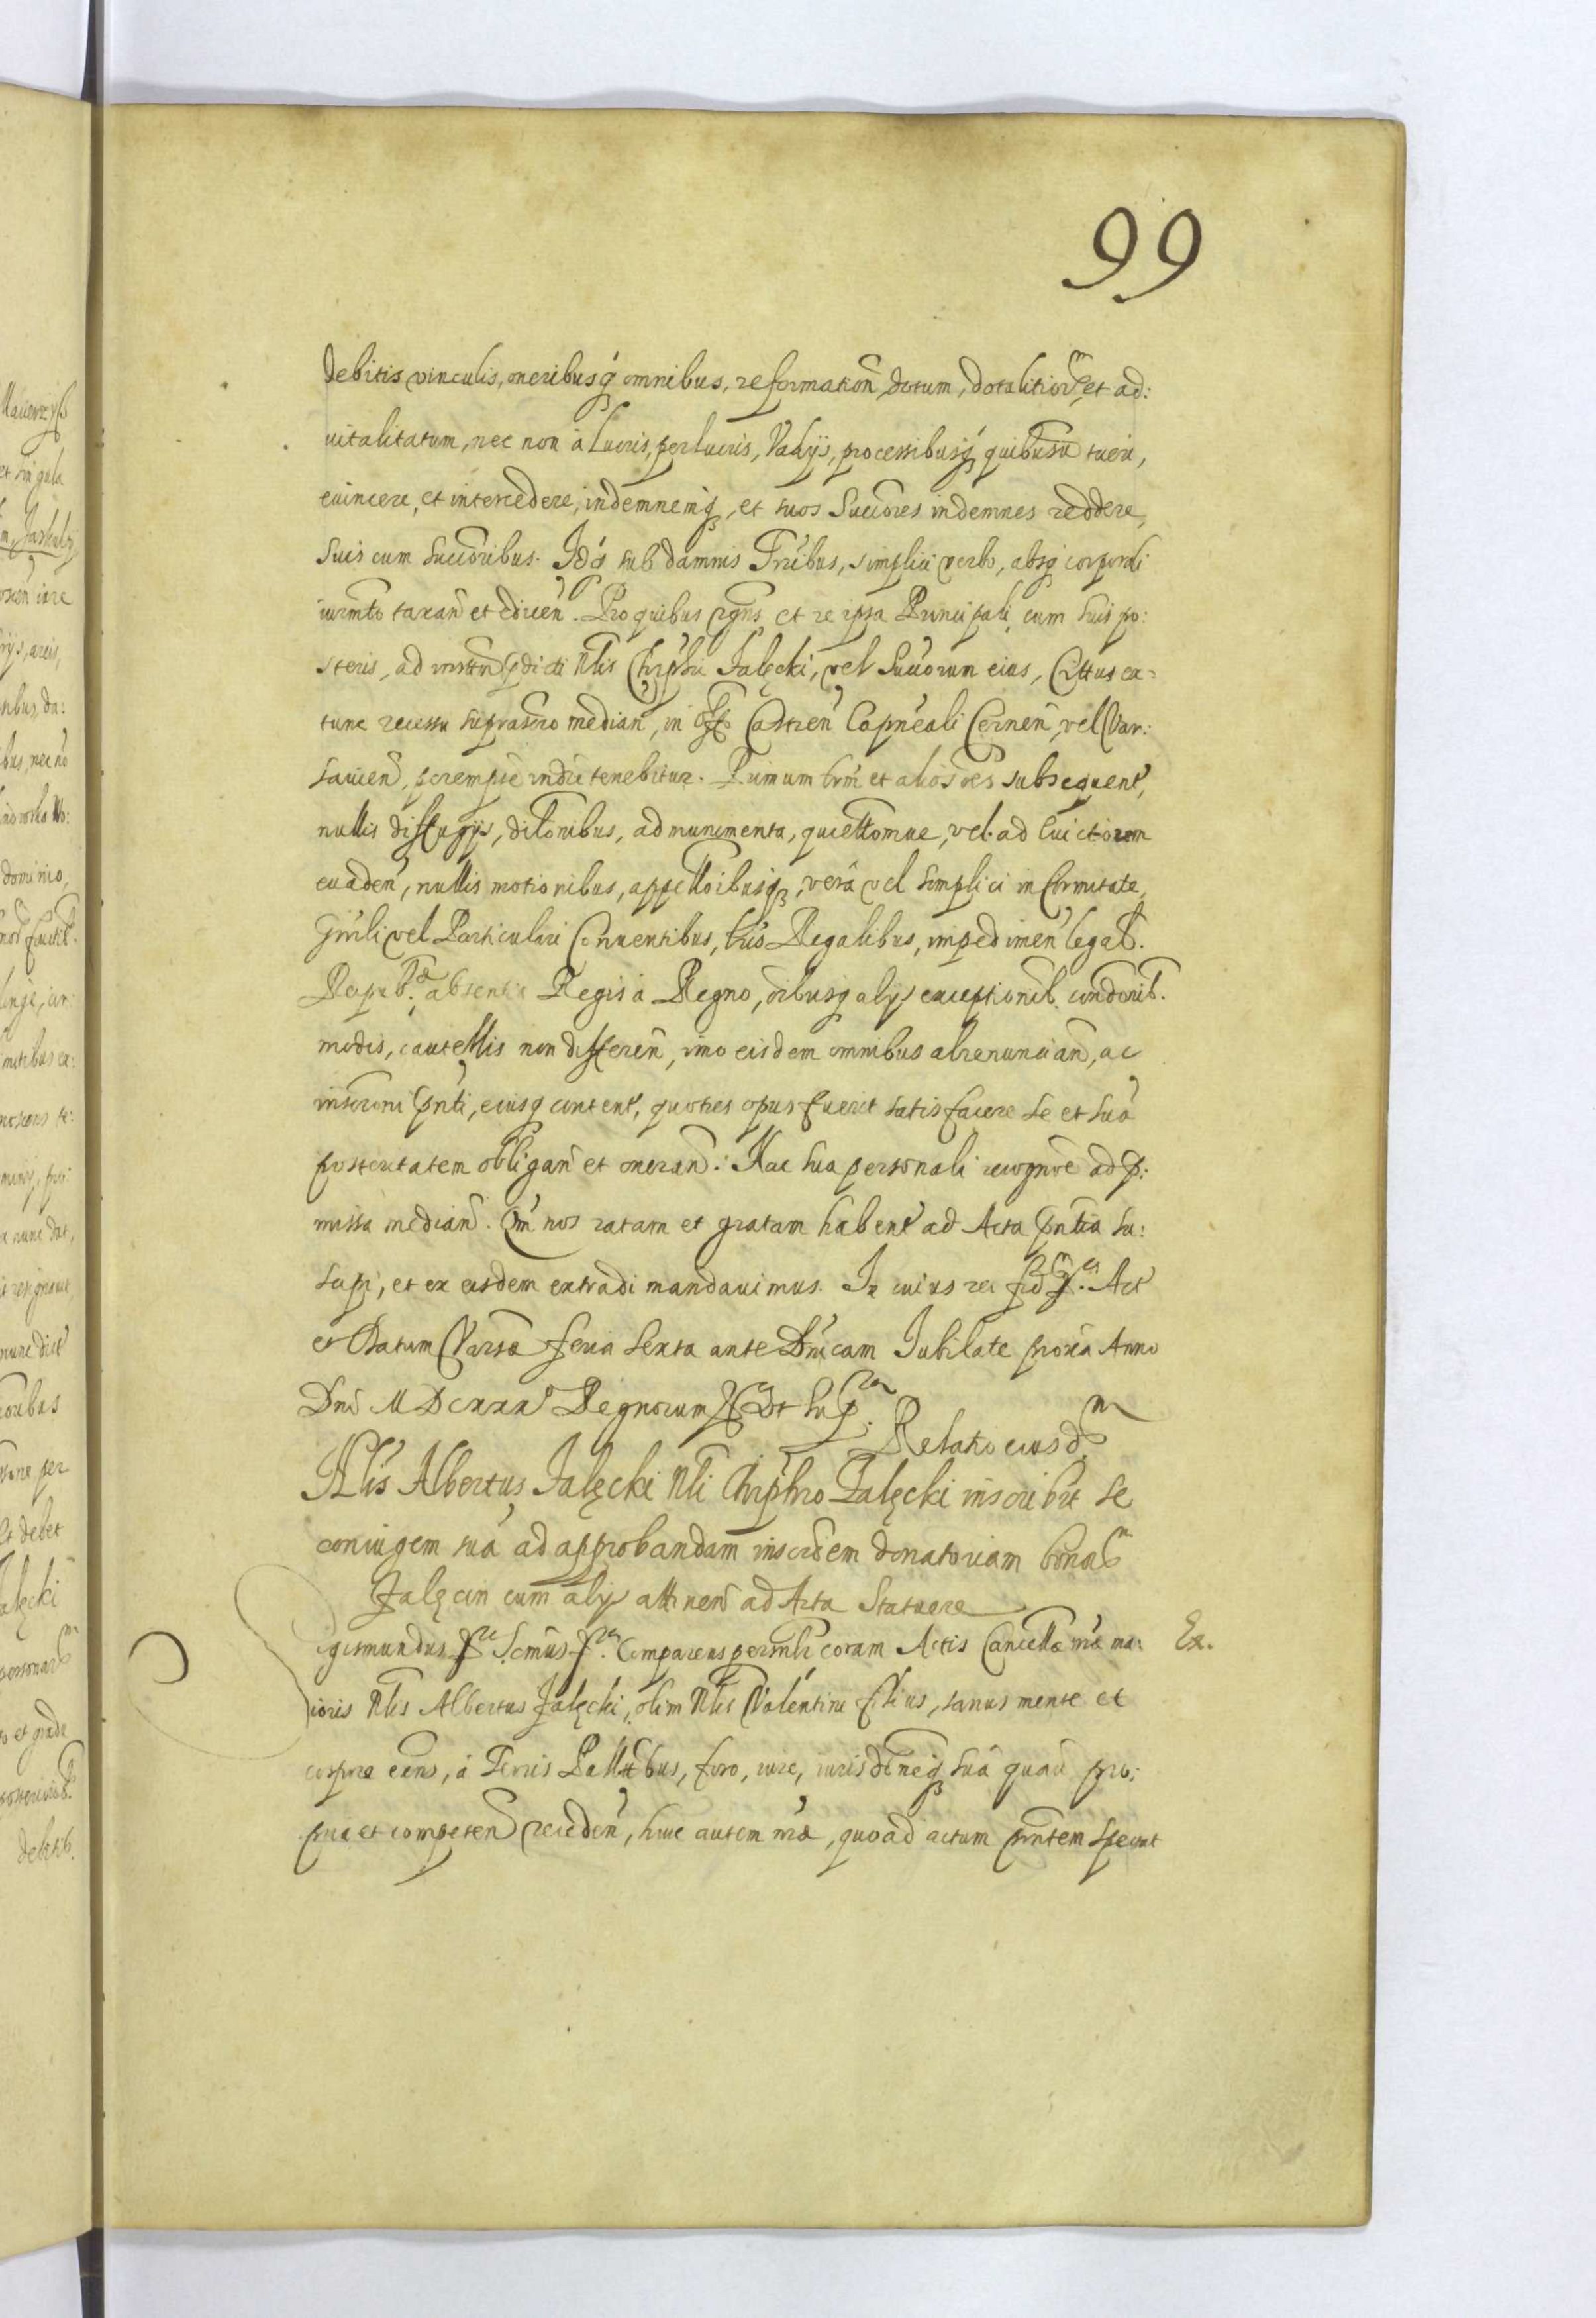 99
debitis vinculis, oneribusq́ omnibus, reformation̄ dotum, dotalitior͂, et ad:
uitalitatum, nec non à lucris, perlucris, Vadijs, processibusq́ quibusū tueri,
euincere, et intercedere, indemnemq́, et suos Succōres indemnes reddere,
suis cum succōribus. Idq́ sub damnis Trībus, simplici verbo, absq́ corporali
iurmto taxan̄ et edicen̄. Pro quibus et re ipsa Principali, cum suis po:
steris, ad inst̄n pdicti Nlis Chrphri Jalęcki, vel Succorum eius, Cittus ex=
tunc recessu suprascro median̄, in offō Castren̄ Capn̄eali Cernen̄, vel Var:
sauien̄, perempīe indīe tenebitur. Primum trm̄ et alios oēs subsequent̄,
nullis diffugijs, dilōnibus, ad munimenta, quiettōmue, vel ad Euictorem
euaden̄, nullis motionibus, appellōibusq́, verā vel simplici in firmitate,
Gnrli vel Particulari Conuentibus, Lris Regalibus, impedimen̄ legal.
Reipub. absentia Regis à Regno, oībusq́ alijs exceptionib. condonib.
modis, cautellis non differen̄, imo eisdem omnibus abrenuncian̄, ac
inscrōni pn̄ti, eiusq́ content̄, quoties opus fuerit satisfacere se et suā
posteritatem obligan̄ et oneran̄. Hac sua personali recognoē ad p:
missa median̄. Qm̄ nos ratam et gratam habent̄ ad Acta pn̄tia su:
scipi, et ex eisdem extradi mandauimus. In cuius rei fid Act
et Datum Varsae feria sexta ante Dn̄icam Jubilate proxīa Anno
Dnī MDCXXX Regnorum Nr̄ Ut sup
Relatio eiusd
Nlis Albertus Jalęcki Nli Chrphro Jalęcki inscribit se
coniugem suā ad approbandam inscrōem donatoriam bonor͂
Jalęcin cum alijs attinen̄ ad Acta Statuere
igismundus Comparens persnlr coram Actis Cancellae nr̄ae ma: Ex.
ioris Nlis Albertus Jalęcki, olim Nlis Valentini filius, sanus mente et
corpore exns, à Terris Pallībus, foro, iure, iurisdīneq́ suā quāū pro:
pria et competen̄ receden̄, huic autem nr̄ae, quoad actum pn̄tem specnt